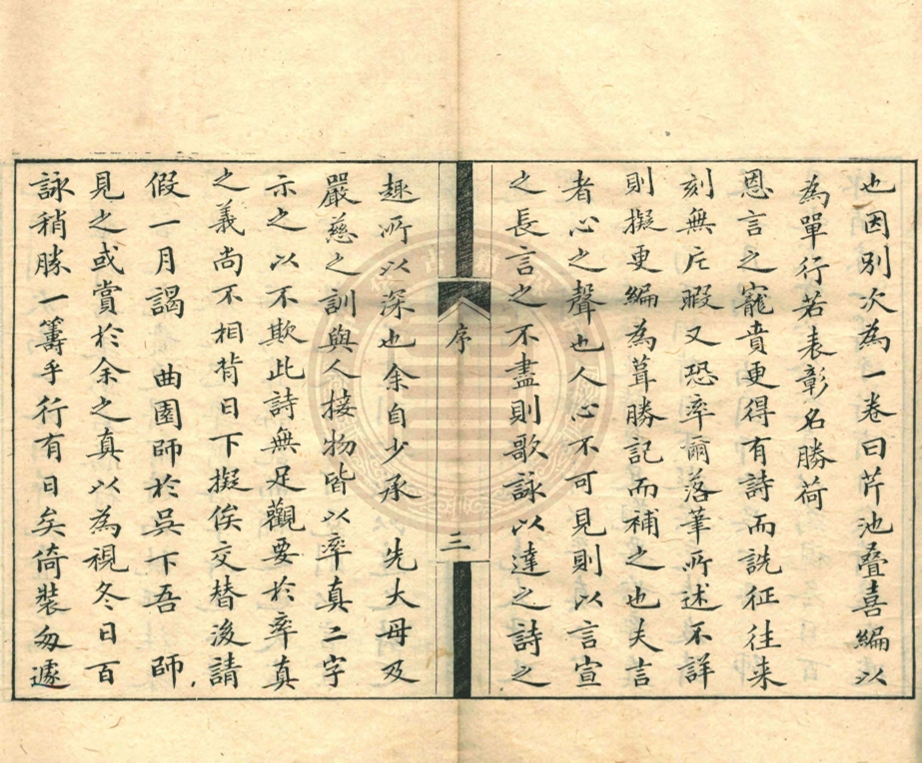 也因別次為一卷曰芹池疊喜編以
為單行若表彰名勝荷
恩言之寵賁更得有詩而詵征往来
刻無片暇又恐率爾落筆所述不詳
則擬更編為葺勝記而補之也夫言
者心之聲也人心不可見則以言宣
之長言之不盡則歌詠以達之詩之
序
三
趣所以深也余自少承 先大母及
嚴慈之訓與人接物皆以率真二字
示之以不欺此詩無足觀要於率真
之義尚不相背日下擬俟交替後請
假一月謁 曲園師於吳下吾 師
見之或賞於余之真以為視冬日百
詠稍勝一籌乎行有日矣倚裝匆遽